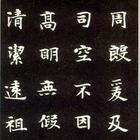 周殷爰及
司空不因
高明無假
清潔遠祖